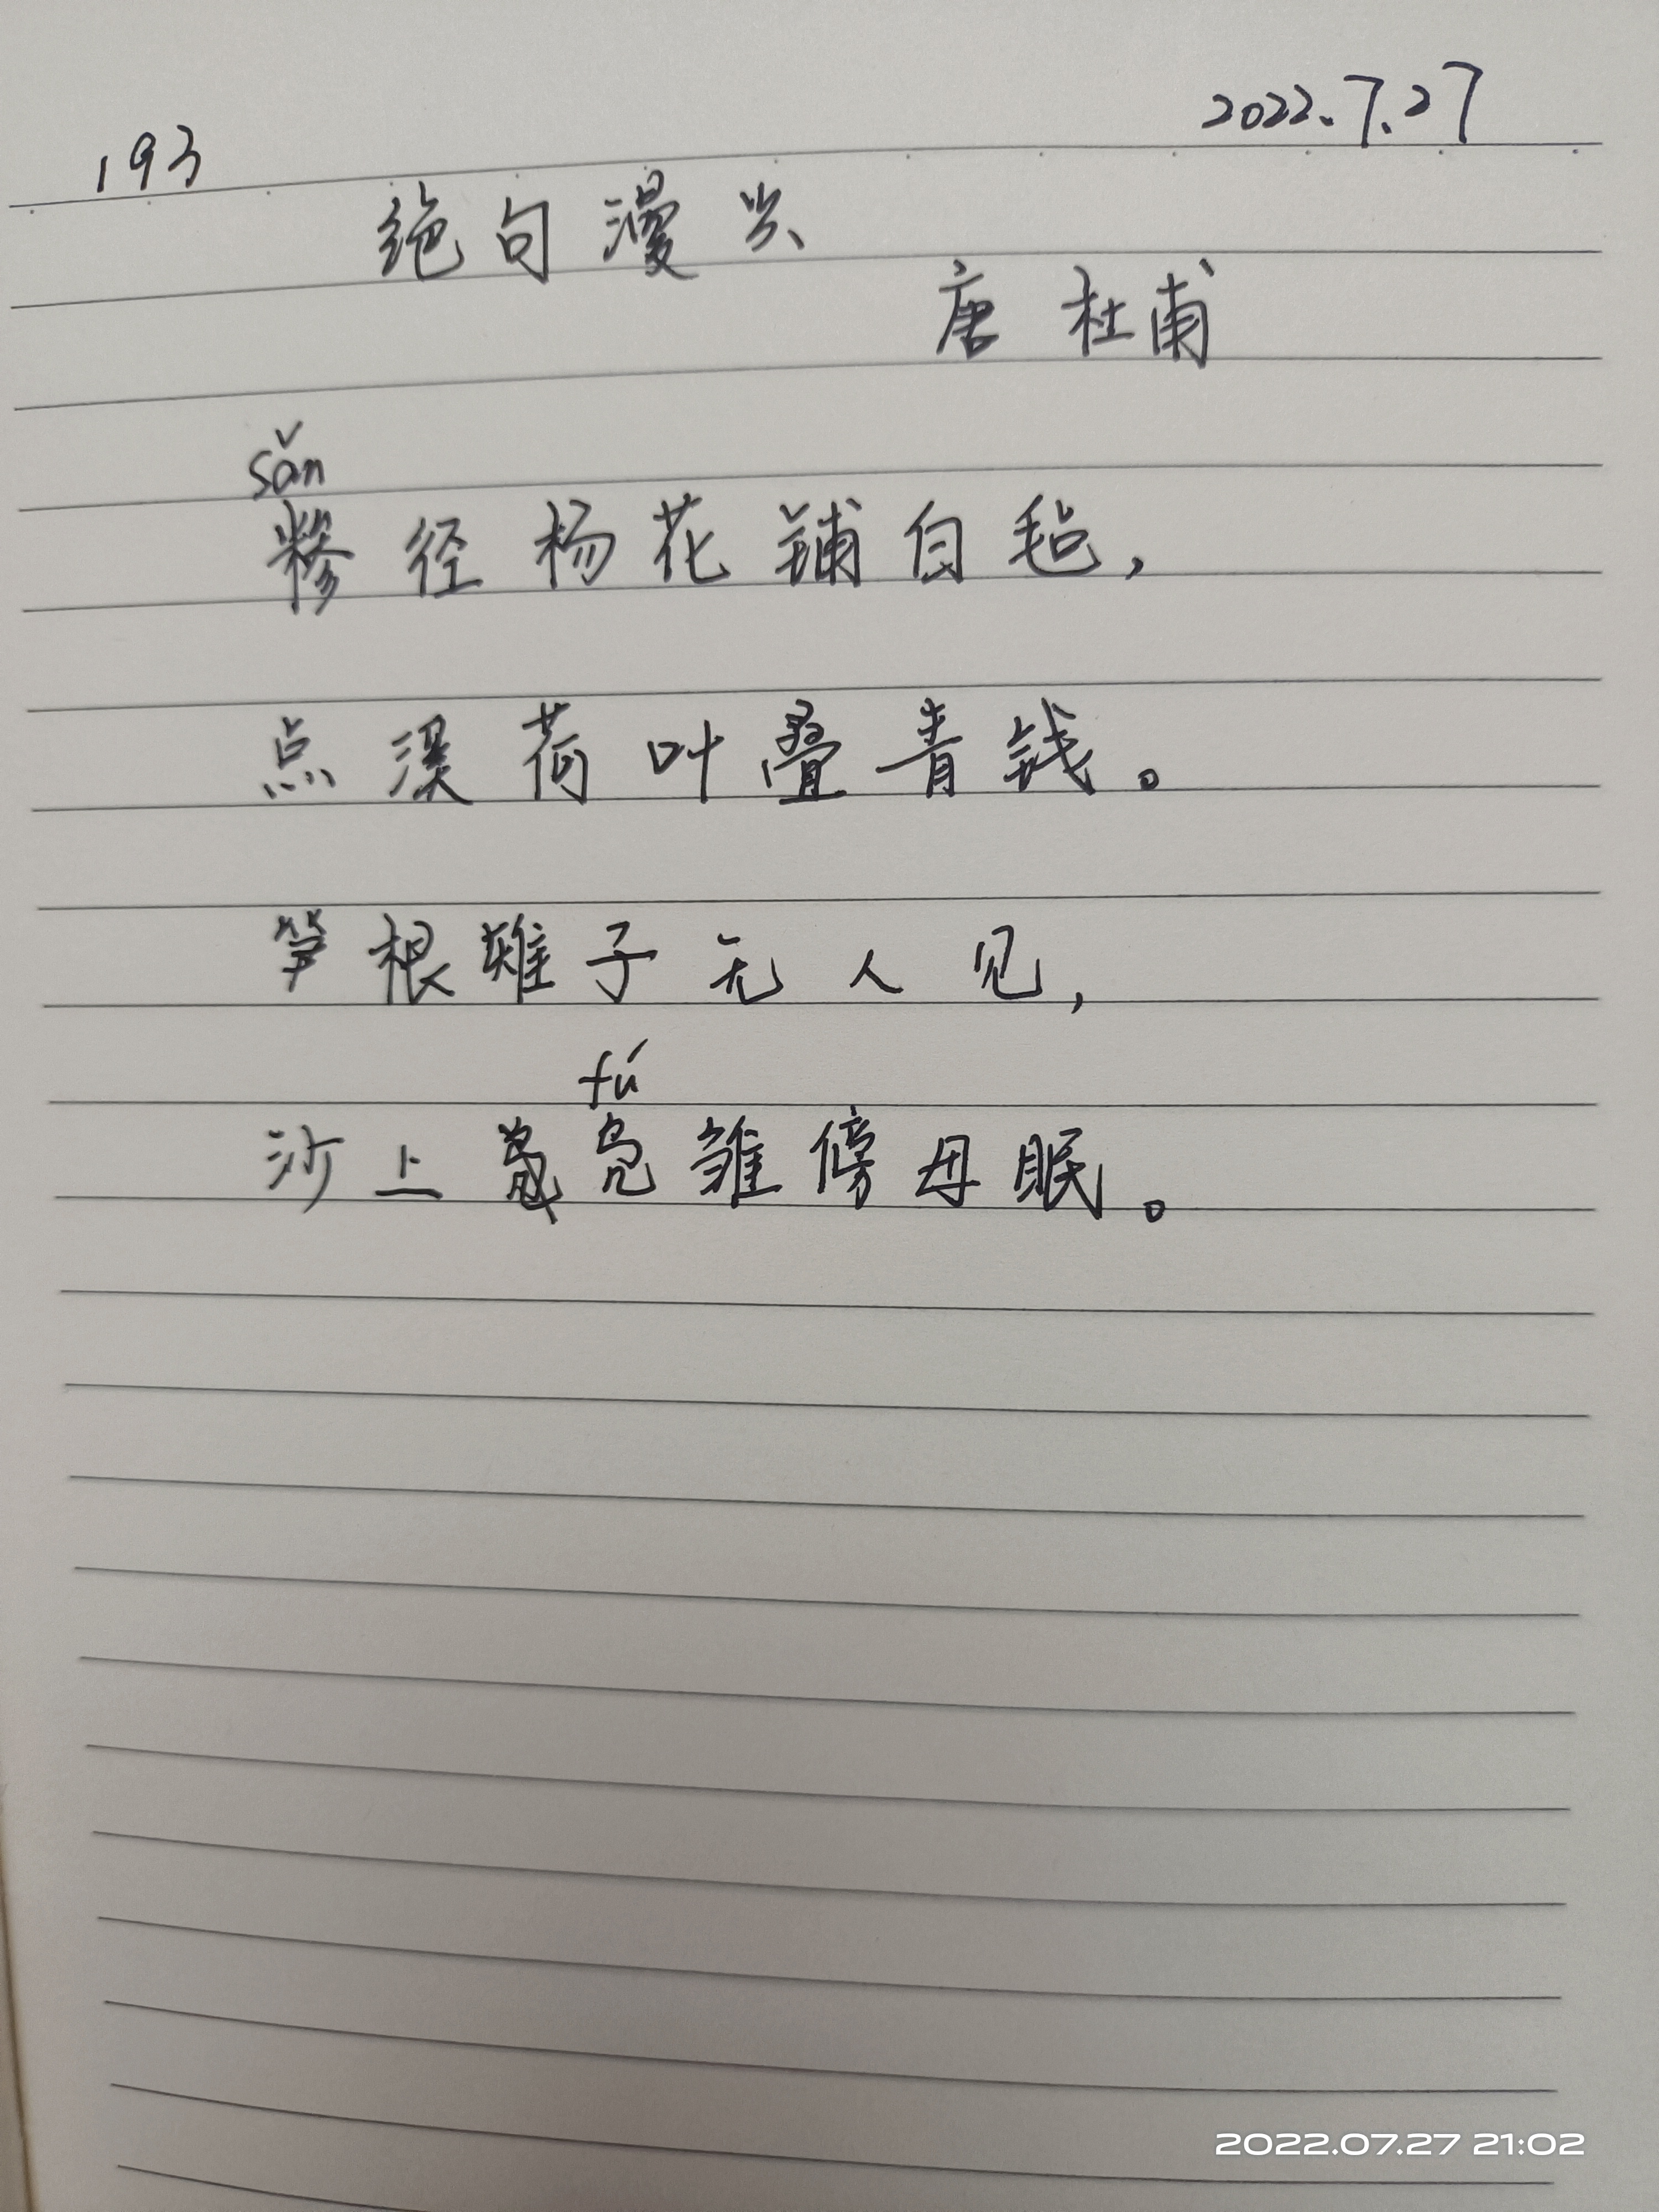 2022.7.27
193
绝句漫兴
唐 杜甫
sǎn
糁径杨花铺白毡，
点溪荷叶叠青钱。
笋根雉子无人见，
fú
沙上凫雏傍母眠。
2022.07.27 21:02